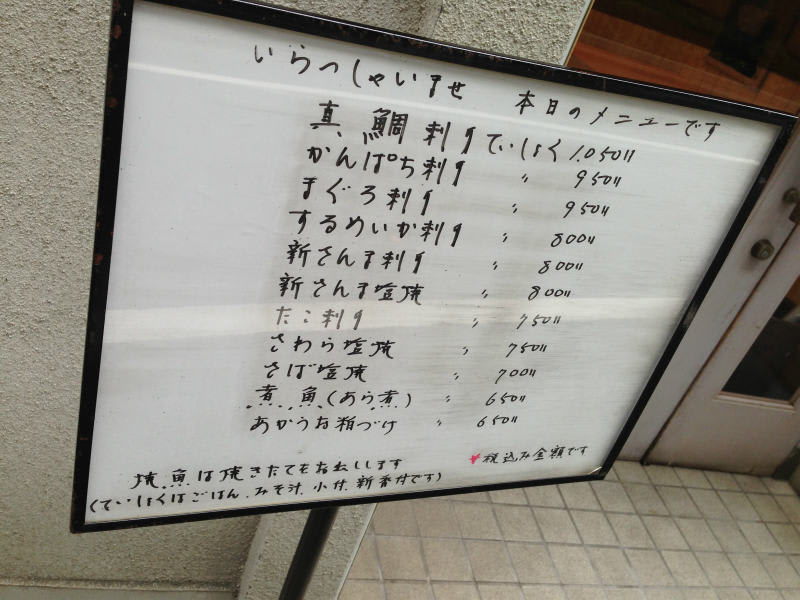 いらっしゃいませ 本日のメニューです
真鯛刺身ていしょく 1.050〃
かんぱち刺身 〃 950〃
まぐろ刺身 〃 950〃
するめいか刺身 〃 800〃
新さんま刺身 〃 800〃
新さんま塩焼 〃 800〃
たこ刺身 〃 750〃
さわら塩焼 〃 750〃
さば塩焼 〃 700〃
煮魚(あら煮) 〃 650〃
あかうお粕づけ 〃 650〃
*税込み金額です
焼魚は焼きたてをお出しします
(ていしょくはごはん、みそ汁、小付、新香付です)